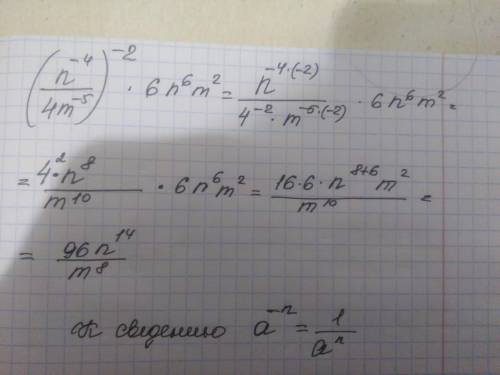 (n⁻⁴/4m⁻⁵)⁻² · 6n⁶m² = n⁻⁴·⁽⁻²⁾/4⁻²·m⁻⁵·⁽⁻²⁾ · 6n⁶m² =
= 4²·n⁸/m¹⁰ · 6n⁶m² = 16·6·n⁸⁺⁶m²/m¹⁰ =
= 96n¹⁴/m⁸
К сведению a⁻ⁿ = 1/aⁿ